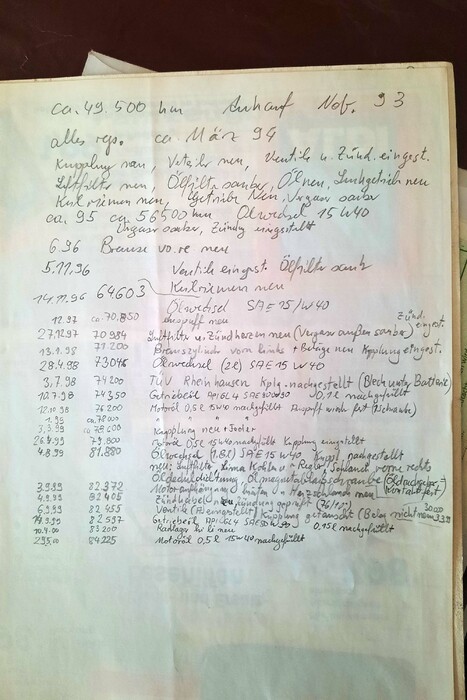 ca. 49.500 km Ankauf Nov. 93
alles rep. ca. März 94
Kupplung neu, Verteiler neu, Ventile u. Zünd. eingest.
Luftfilter neu, Ölfilter sauber, Öl neu, Lenkgetriebe neu
Keilriemen neu, Getriebe neu, Vergaser sauber
ca. 95 ca. 56500 km Ölwechsel 15W40
Vergaser sauber, Zündg eingestellt
6.96 Bremse vo. re neu
5.11.96 Ventile eingest. Ölfilter sauber
14.11.96 64603 Keilriemen neu
Ölwechsel SAE 15/W40
12.97 ca. 70.850 Auspuff neu Zünd. eingest.
27.12.97 70984 Luftfilter u. Zündkerzen neu (Vergaser außen sauber)
13.4.98 71.200 Bremszylinder vorn links + Beläge neu Kupplung eingest.
28.4.98 73046 Ölwechsel (2l) SAE 15 W40
3.7.98 74200 TÜV Rheinhausen Kplg. nachgestellt (Blech unter Batterie)
10.7.98 74350 Getriebeöl API GL4 SAE80W90 0,1l nachgefüllt
12.10.98 76200 Motoröl 0,5l 15W40 nachgefüllt Auspuff wieder fest (Schraube)
1.99 ca. 78000
3.3.99 ca 78.600 Kupplung neu +
26.4.99 79.800 Motoröl 0,5l 15W40 nachgefüllt Kupplung eingestellt
4.8.99 81.880 Ölwechsel (1,8l) SAE 15 W40 Kuppl. nachgestellt
neu: Luftfilter, Lima Kohlen + Regler, vorne rechts
Öldeckeldichtung, Ölmagnetablaßschraube (Öldruckgeber-Kontakt fest)
3.9.99 82.372 Motoraufhängung hinten neu
4.9.99 82405 Zündkabel neu, Zündung geprüft
6.9.99 82.455 Ventile eingestellt, Kupplung getauscht (Belag nicht neu)
14.9.99 82.597 Getriebeöl API GL4 SAE80W90 0,15l nachgefüllt
10.4.00 83200 Radlager hi li neu
29.5.00 84225 Motoröl 0,5l 15W40 nachgefüllt